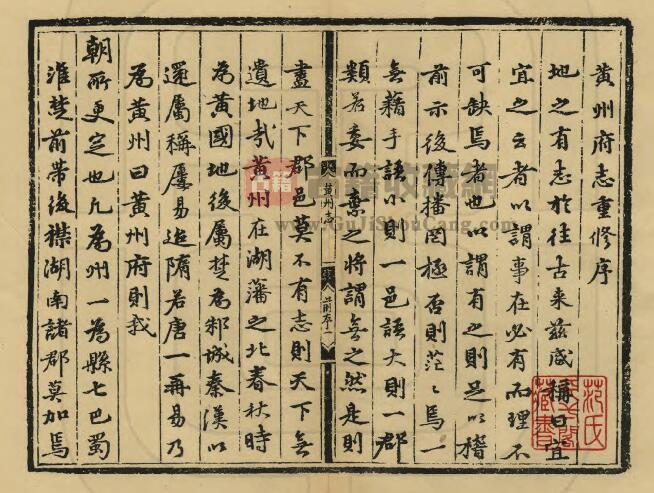 黄州府志重修序
地之有志於往古来兹咸稱曰宜
宜之云者以謂事在必有而理不
可缺焉者也以謂有之則足以稽
前示後傳播罔極否則茫〻焉一
無藉手語小則一邑語大則一郡
類若委而棄之將謂無之然是則
黄州志
前序一
盡天下郡邑莫不有志則天下無
遺地哉黄州在湖藩之北春秋時
為黄國地後屬楚為邾城秦漢以
還屬稱屢易迨隋若唐一再易乃
為黄州曰黄州府則我
朝所更定也凡為州一為縣七巴蜀
淮楚前带後襟湖南諸郡莫加焉
范氏
天一閣
藏書
古籍
古籍收藏網
www.GuJiShouCang.com